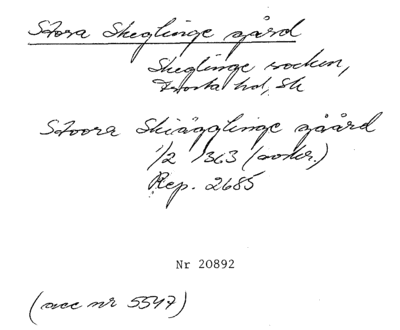 Stora Skeglinge gård
Skeglinge socken,
Frosta hd, Sk
Stoora Skiägglinge gåård
1/2 1363 (avskr.)
Rep. 2685
Nr 20892
(acc nr 5547)